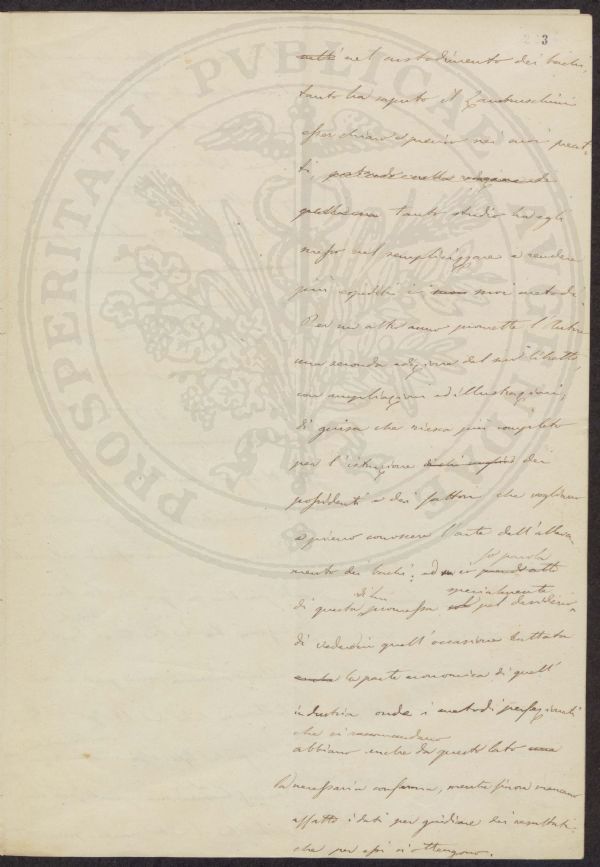 3
PROSPERITATI PVBLICAE AVGENDAE
nel custodimento dei bachi,
tanto ha saputo il Lambruschini
esser chiaro e preciso nei suoi precet-
ti, tanto studio ha egli
messo nel semplicizzare e rendere
più spediti i suoi metodi.
Per un altr'anno promette l'Autore
una seconda edizione del suo libretto,
con ampliazioni ed illustrazioni,
di guisa che riesca più completo
per l'istruzione dei
possidenti e dei fattori che vogliano
a pieno conoscere l'arte dell'alleva-
mento dei bachi; ed
di questa di lui promessa specialmente pel desiderio
di vedere in quell'occasione trattata
la parte economica di quell'
industria onde i metodi perfezionati
che si raccomandano
abbiano anche da questo lato
la necessaria conferma, mentre finora mancano
affatto i dati per giudicare dei resultati
che per essi si ottengono.